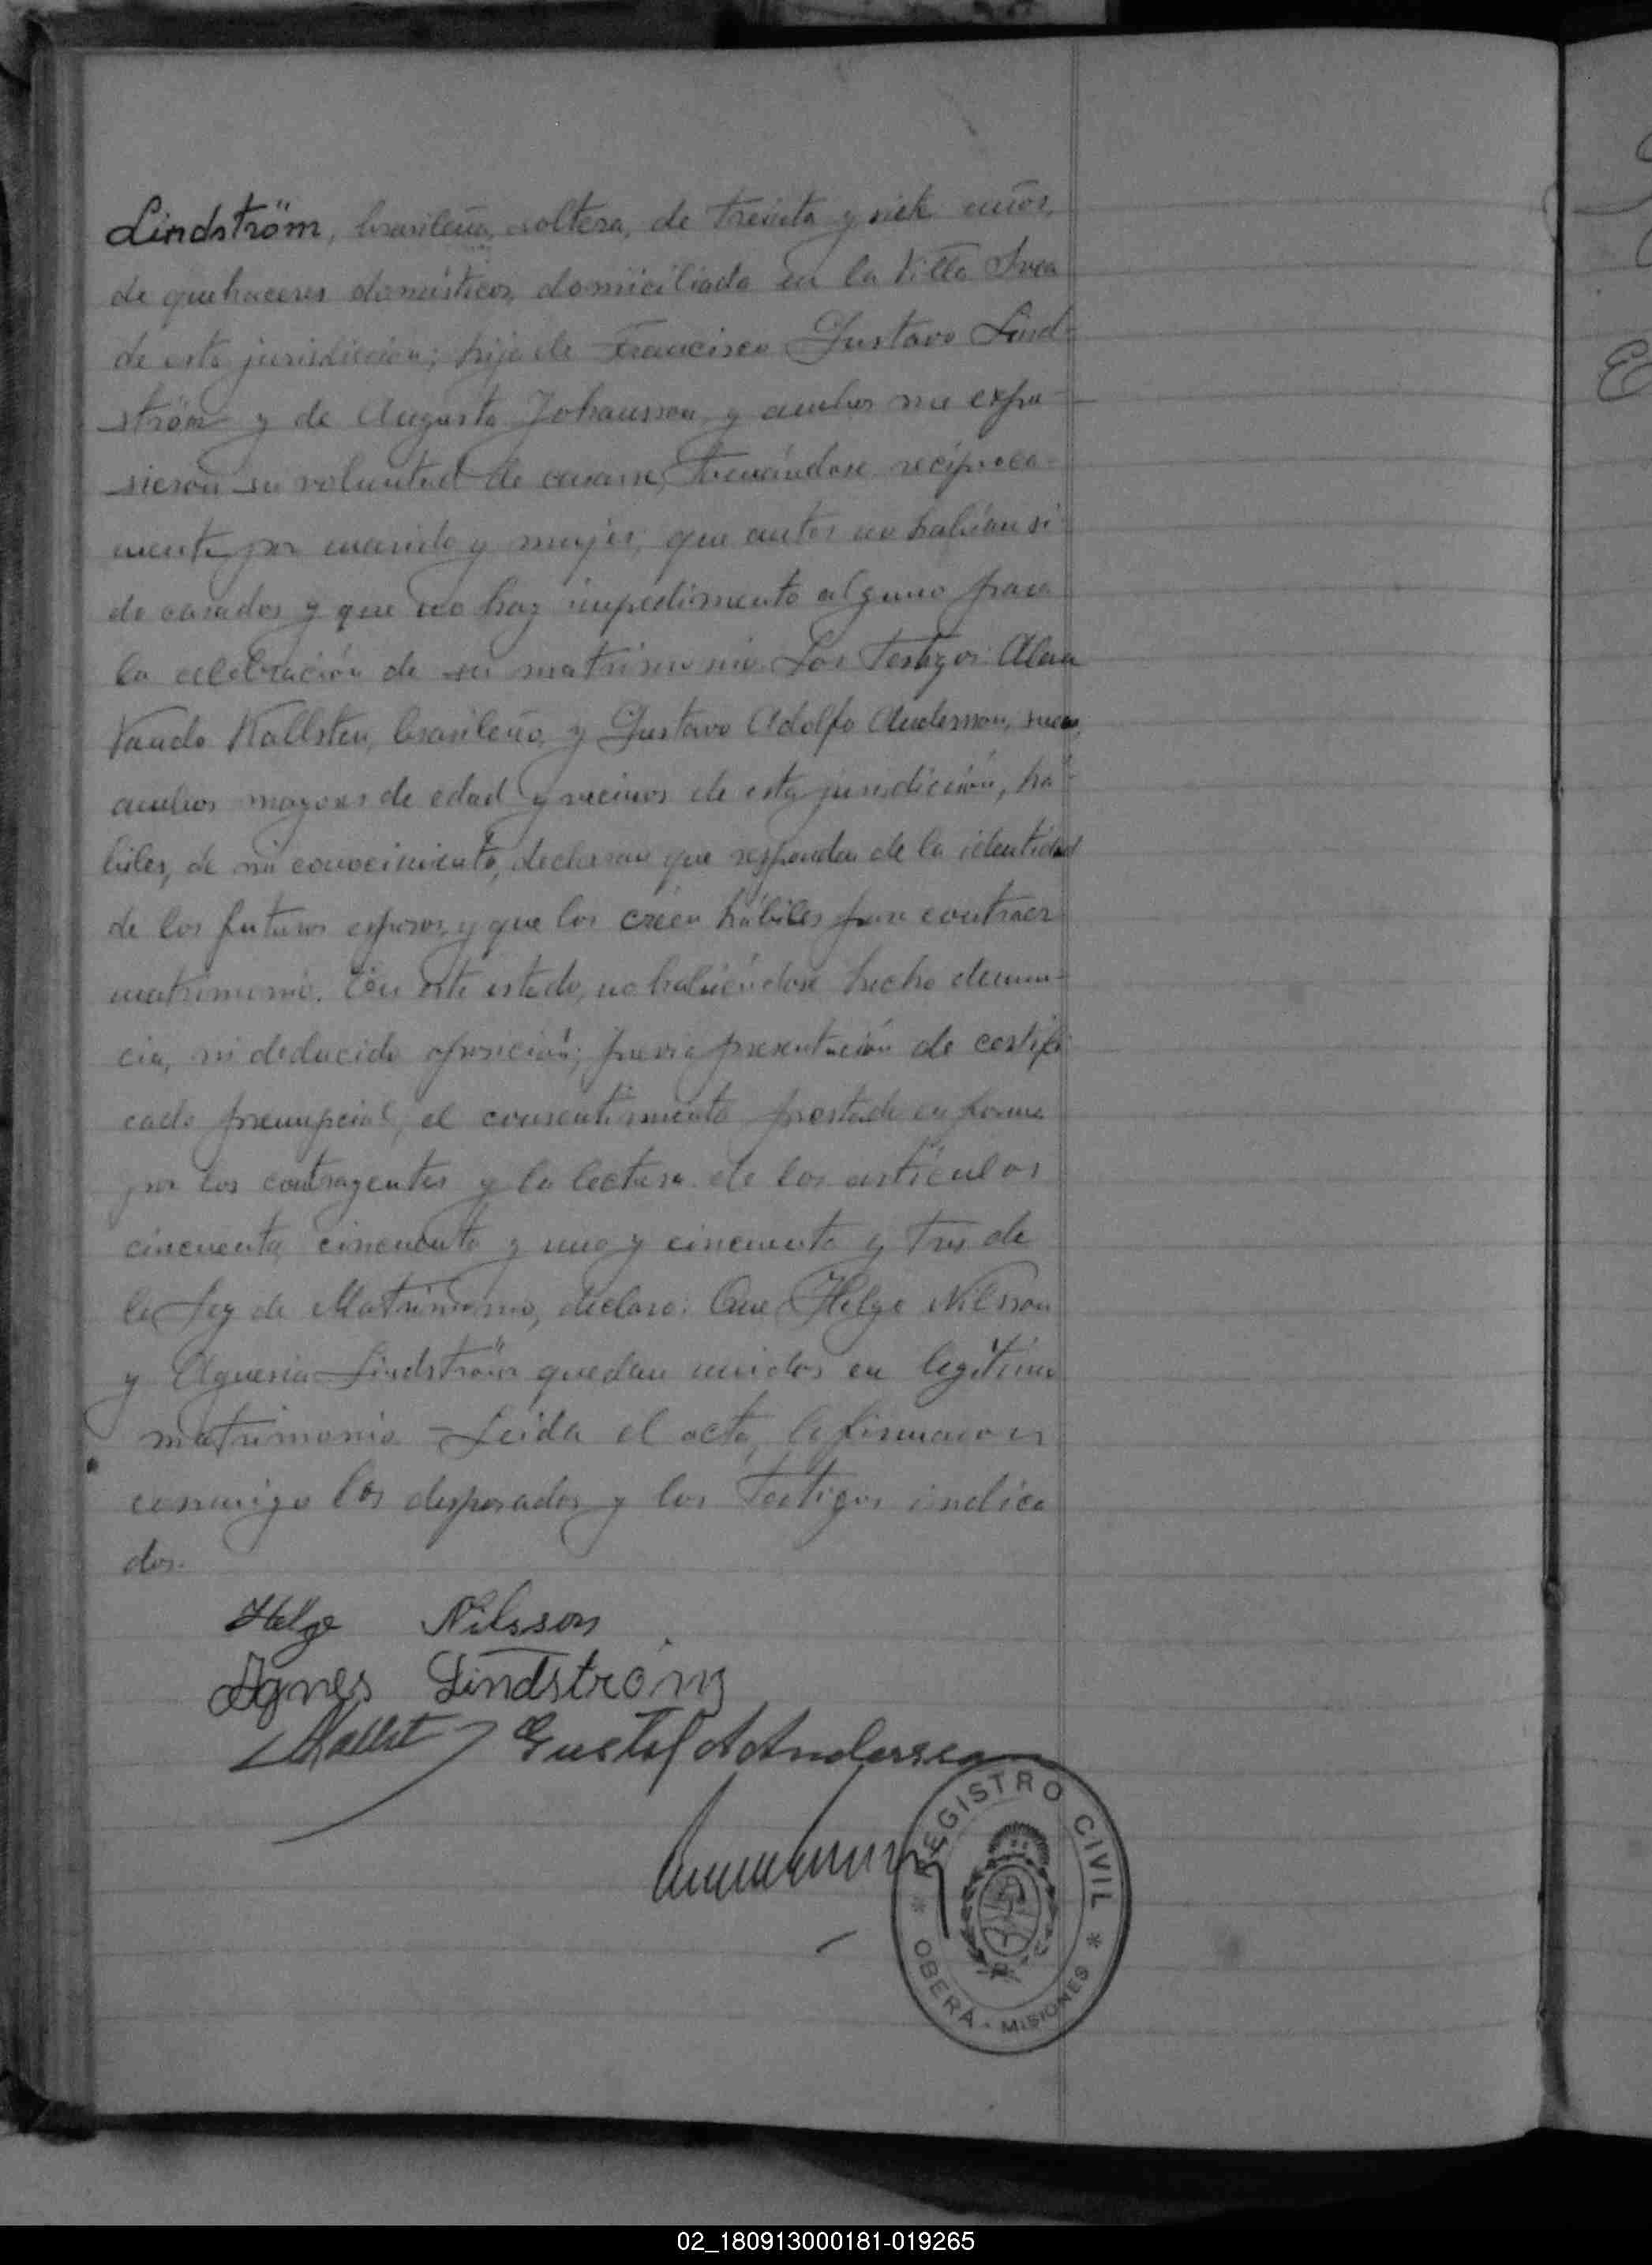 Lindström, brasileña, soltera, de treinta y siete años,
de quehaceres domésticos, domiciliada en la Villa Svea
de esta jurisdicción; hija de Francisco Gustavo Lind-
ström y de Augusta Johansson, y ambos me expu-
sieron su voluntad de casarse, tomándose recíproca-
mente por marido y mujer, que antes no habían si-
do casados y que no hay impedimento alguno para
la celebración de su matrimonio. Los Testigos: Alan
Vando Kallsten, brasileño, y Gustavo Adolfo Andersson, sueco,
ambos mayores de edad y vecinos de esta jurisdicción, há-
biles, de mi conocimiento, declaran que responden de la identidad
de los futuros esposos, y que los creen hábiles para contraer
matrimonio. En este estado, no habiéndose hecho denun-
cia, ni deducido oposición; previa presentación de certifi
cado prenupcial, el consentimiento prestado en forma
por los contrayentes y la lectura de los artículos
cincuenta, cincuenta y uno y cincuenta y tres de
la Ley de Matrimonio, declaro: Que Helge Nilsson
y Agnesia Lindström quedan unidos en legítimo
matrimonio - Leida el acta, la firmaron
conmigo los desposados y los Testigos indica
dos.
Helge Nilsson
Agnes Lindström
Kallst Gustaf A Andersson
REGISTRO CIVIL
OBERÁ - MISIONES
02_180913000181-019265